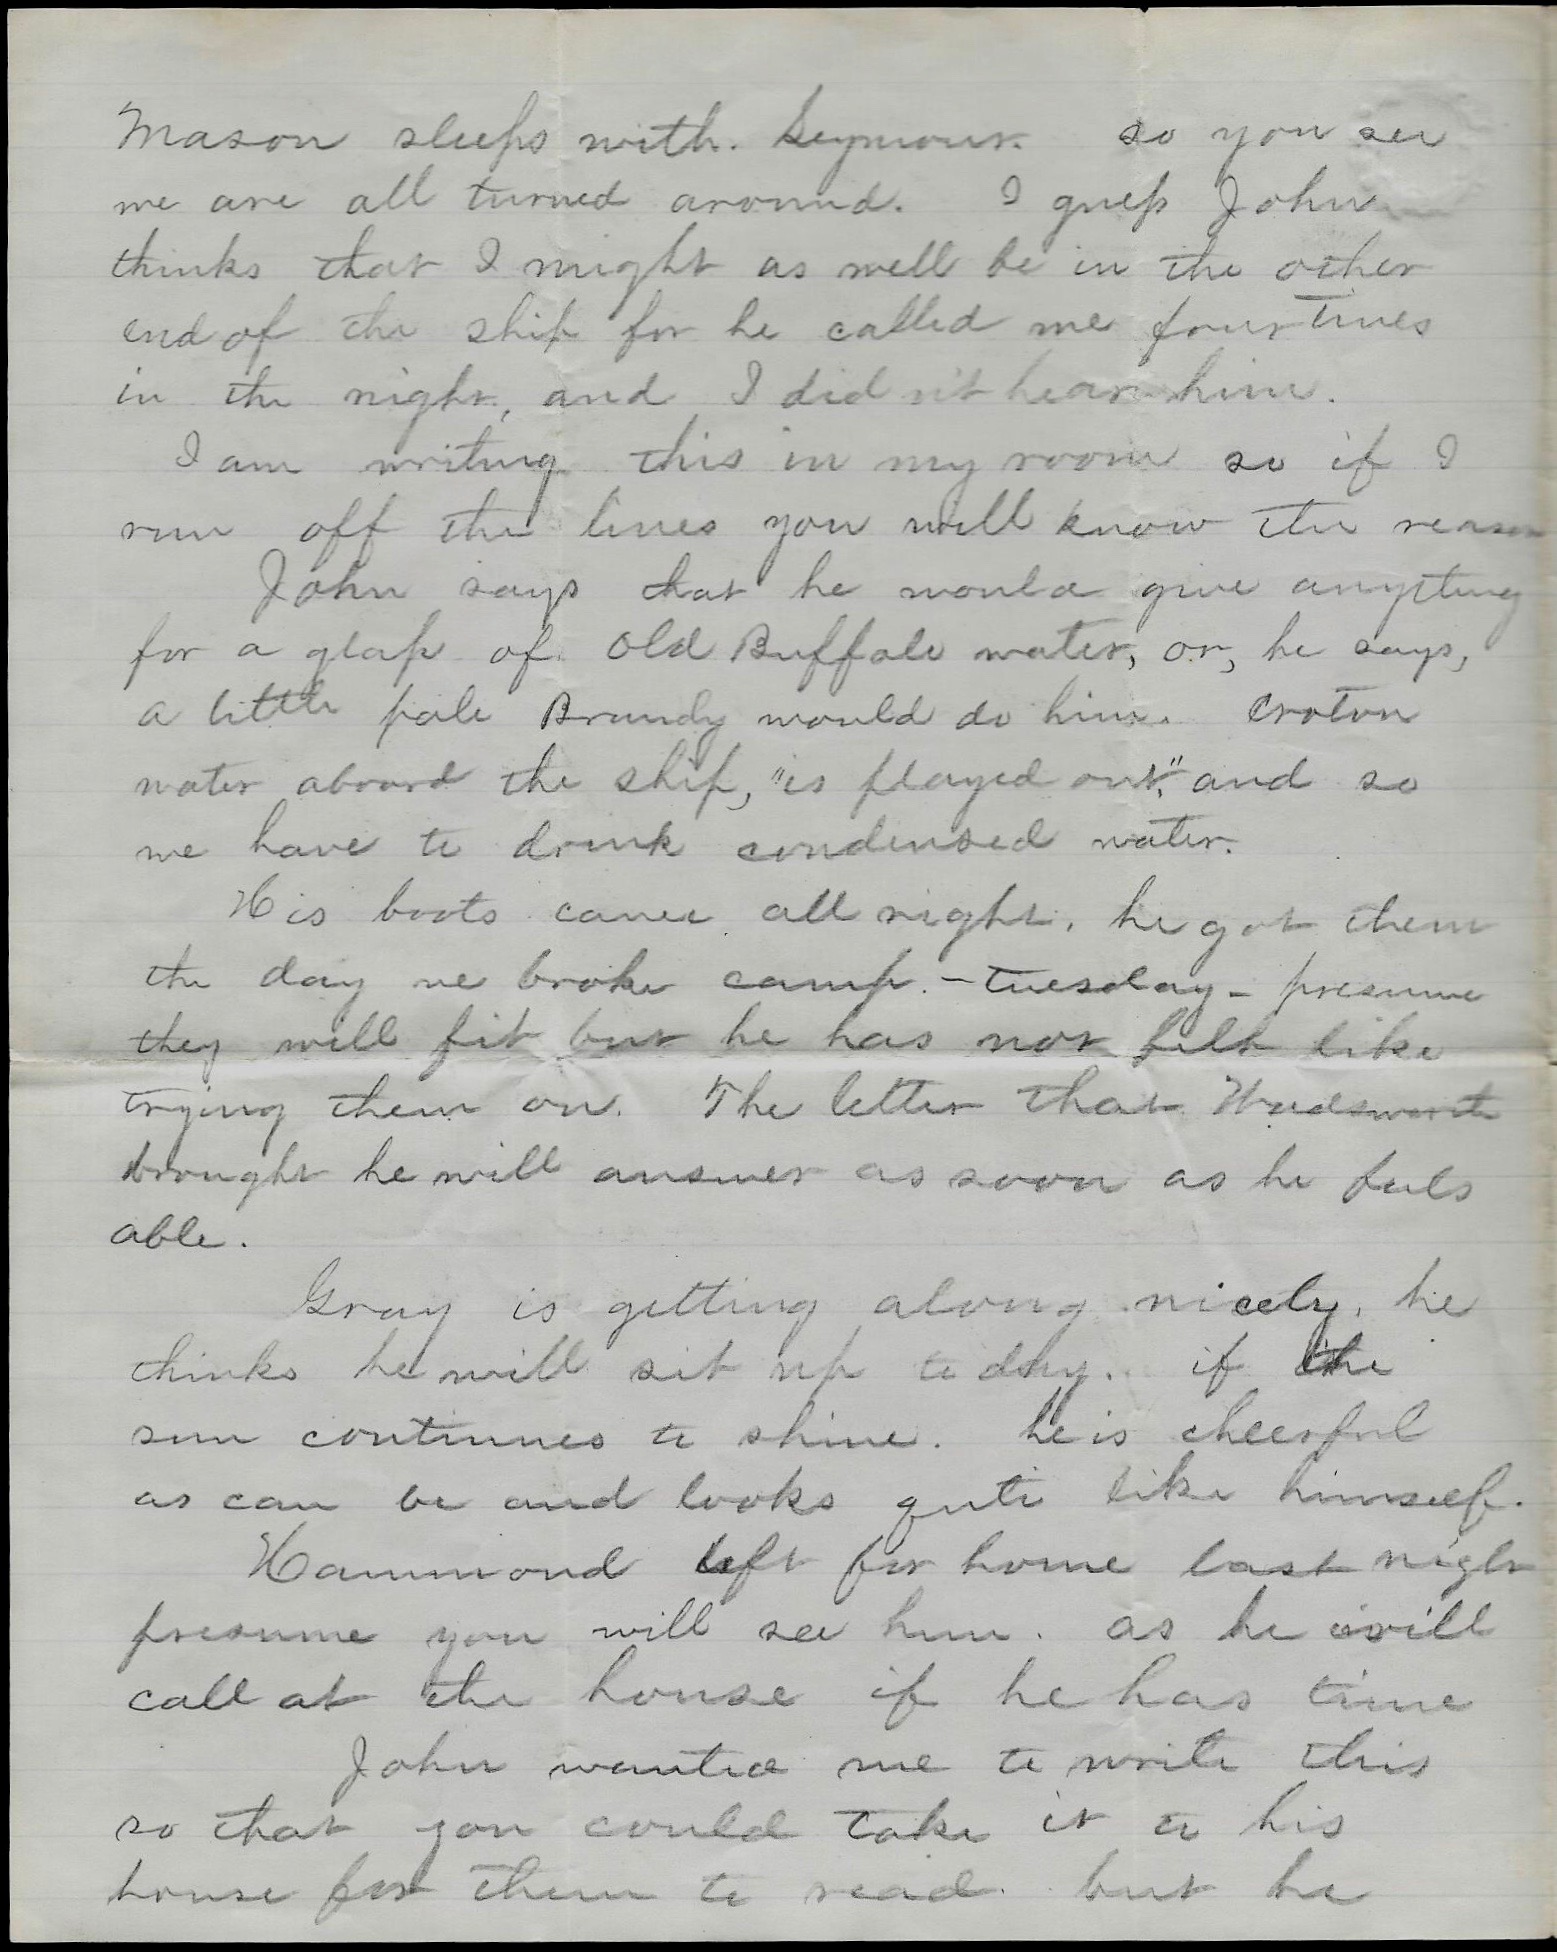 Mason sleeps with. Seymour. so you see
we are all turned around. I guess John
thinks that I might as well be in the other
end of the ship for he called me four times
in the night, and I did n't hear him.
I am writing this in my room so if I
run off the lines you will know the reason
John says that he would give anything
for a glass of old Buffalo water, or, he says,
a little pale Brandy would do him. Croton
water aboard the ship, "is played out," and so
we have to drink condensed water.
His boots came all right. he got them
the day we broke camp. - Tuesday - presume
they will fit but he has not felt like
trying them on. The letter that Wadsworth
brought he will answer as soon as he feels
able.
Gray is getting along nicely. he
thinks he will sit up to day. if the
sun continues to shine. he is cheerful
as can be and looks quite like himself.
Hammond left for home last night
presume you will see him. as he will
call at the house if he has time
John wanted me to write this
so that you could take it to his
house for them to read. but he